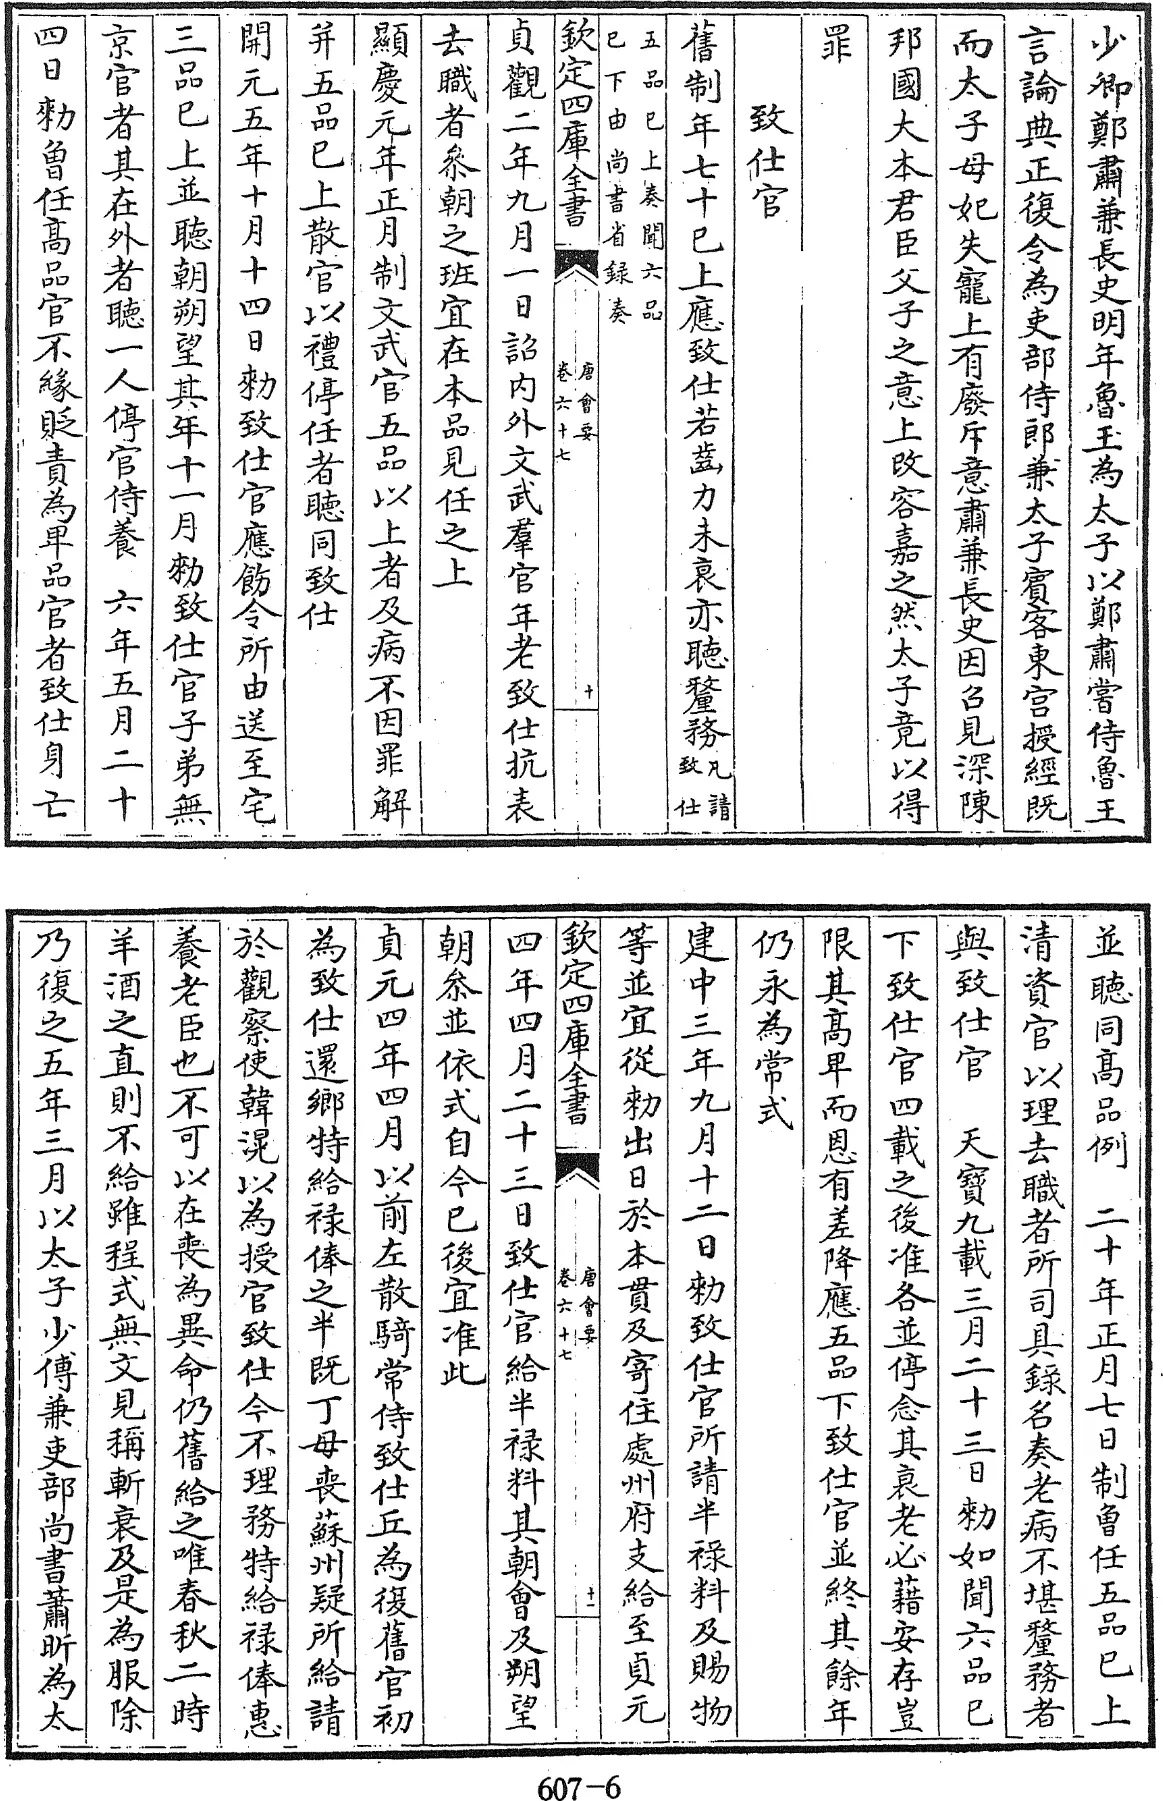 少卿鄭肅兼長史明年魯王為太子以鄭肅嘗侍魯王
言論典正復令為吏部侍郎兼太子賓客東宮授經既
而太子母妃失寵上有廢斥意肅兼長史因召見深陳
邦國大本君臣父子之意上改容嘉之然太子竟以得
罪
致仕官
舊制年七十已上應致仕若齒力未衰亦聽釐務凡請致仕
五品已上奏聞六品
已下由尚書省録奏
欽定四庫全書
唐會要
卷六十七
十
貞觀二年九月一日詔内外文武羣官年老致仕抗表
去職者叅朝之班宜在本品見任之上
顯慶元年正月制文武官五品以上者及病不因罪解
并五品已上散官以禮停任者聽同致仕
開元五年十月十四日勑致仕官應飭令所由送至宅
三品已上並聽朝朔望其年十一月勑致仕官子弟無
京官者其在外者聽一人停官侍養 六年五月二十
四日勑曾任高品官不緣貶責為卑品官者致仕身亡
並聽同高品例 二十年正月七日制曾任五品已上
清資官以理去職者所司具錄名奏老病不堪釐務者
與致仕官 天寶九載三月二十三日勑如聞六品已
下致仕官四載之後准各並停念其衰老必藉安存豈
限其高卑而恩有差降應五品下致仕官並終其餘年
仍永為常式
建中三年九月十二日勑致仕官所請半禄料及賜物
等並宜從勑出日於本貫及寄住處州府支給至貞元
欽定四庫全書
唐會要
卷六十七
十一
四年四月二十三日致仕官給半禄料其朝會及朔望
朝叅並依式自今已後宜准此
貞元四年四月以前左散騎常侍致仕丘為復舊官初
為致仕還鄉特給禄俸之半既丁母喪蘇州疑所給請
於觀察使韓滉以為授官致仕今不理務特給禄俸惠
養老臣也不可以在喪為異命仍舊給之唯春秋二時
羊酒之直則不給雖程式無文見稱斬衰及是為服除
乃復之五年三月以太子少傅兼吏部尚書蕭昕為太
607-6